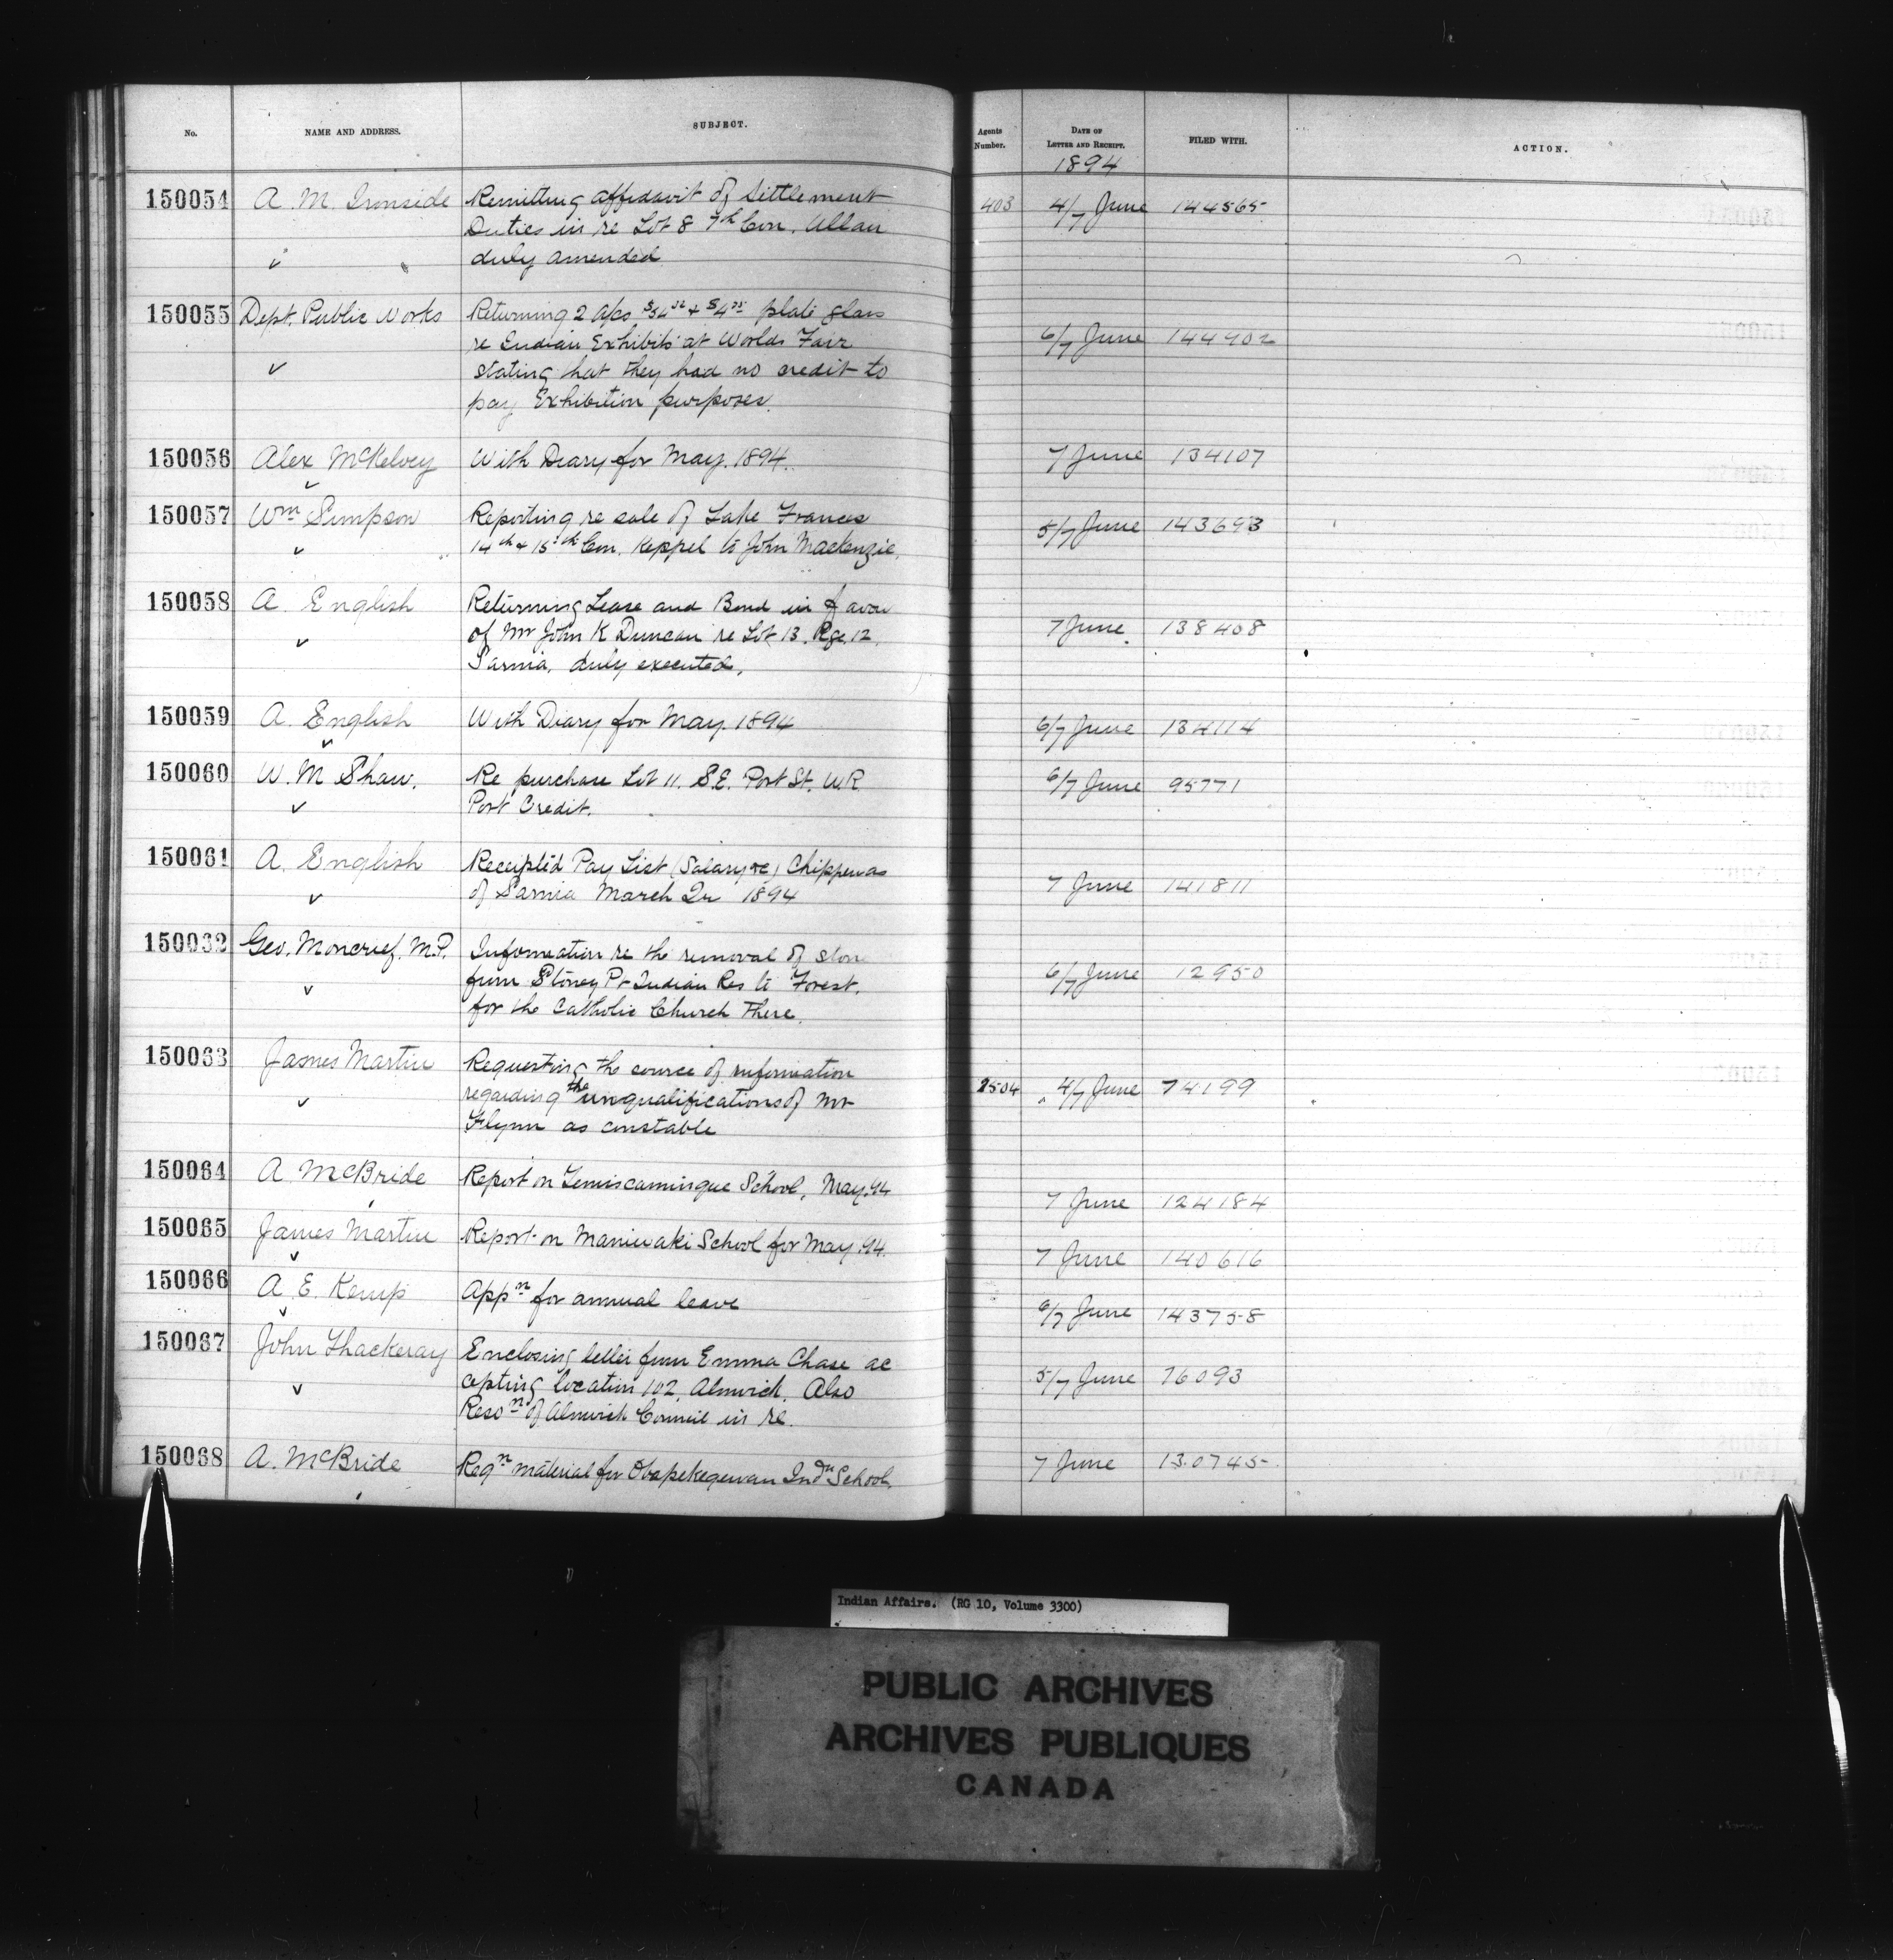 No. NAME AND ADDRESS. SUBJECT. Agents Number. DATE OF LETTER AND RECEIPT. FILED WITH. ACTION.
1894
150054 A. M. Ironside Remitting affidavit of Settlement 403 4/7 June 144565
Duties in re Lot 8 7th Con. Allan
duly amended
150055 Dept. Public Works Returning 2 a/cs plate glass
re Indian Exhibits at Worlds Fair 6/7 June 144902
stating that they had no credit to
pay Exhibition purposes.
150056 Alex McKelvey With Diary for May. 1894. 7 June 134107
150057 Wm Simpson Reporting re sale of Lake Frances 5/7 June 143693
14th & 15th Con. Keppel to John Mackenzie.
150058 A. English Returning Lease and Bond in favou
of Mr John K Duncan re Lot 13. Rge. 12 7 June 138408
Sarnia, duly executed.
150059 A. English With Diary for May. 1894 6/7 June 134114
150060 W. M Shaw. Re purchase Lot 11. S.E. Port St. W.R 6/7 June 95771
Port Credit.
150061 A. English Receipted Pay List (Salary &c) Chippewas
of Sarnia March Qr 1894 7 June 141811
150062 Geo. Moncrief. M.P. Information re the removal of ston
from Stoney Pt Indian Res to Forest. 6/7 June 12950
for the Catholic Church there.
150063 James Martin Requesting the source of information
regarding the unqualifications of Mr 1504 4/7 June 74199
Flynn as constable
150064 A McBride Report on Temiscamingue School, May.94 7 June 124184
150065 James Martin Report on Maniwaki School for May.94. 7 June 140616
150066 A. E. Kemp Appn for annual leave 6/7 June 143758
150067 John Thackeray Enclosing letter from Emma Chase ac
cepting location 102, Alnwick. Also 5/7 June 76093
Reson of Alnwick Council in re.
150068 A. McBride Reqn material for Obapekegewan Indn School. 7 June 130745
Indian Affairs. (RG 10, Volume 3300)
PUBLIC ARCHIVES
ARCHIVES PUBLIQUES
CANADA